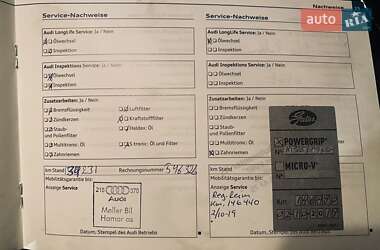 Nachweise
auto RIA
Service-Nachweise
Audi LongLife Service: Ja / Nein
Ölwechsel
Inspektion
Audi Inspektions Service: Ja / Nein
Ölwechsel
Inspektion
Zusatzarbeiten: Ja / Nein
Bremsflüssigkeit
Luftfilter
Zündkerzen
Kraftstofffilter
Staub- und Pollenfilter
Haldex: Öl
Multitronic: Öl
S tronic: Öl und Filter
Zahnriemen
km Stand
Rechnungsnummer
Mobilitätsgarantie bis:
Anzeige Service
Audi
Møller Bil
Hamar as
Datum, Stempel des Audi Betriebs
Service-Nachweise
Audi LongLife Service: Ja / Nein
Ölwechsel
Inspektion
Audi Inspektions Service: Ja / Nein
Ölwechsel
Inspektion
Zusatzarbeiten: Ja / Nein
Bremsflüssigkeit
Zündkerzen
Staub- und Pollenfilter
Multitronic: Öl
Zahnriemen
km Stand
Mobilitätsgarantie bis:
Anzeige Service
Reg. Reim
Km: 146440
2/10-19
Datum, Stempel des Audi
Gates
POWERGRIP
MICRO-V